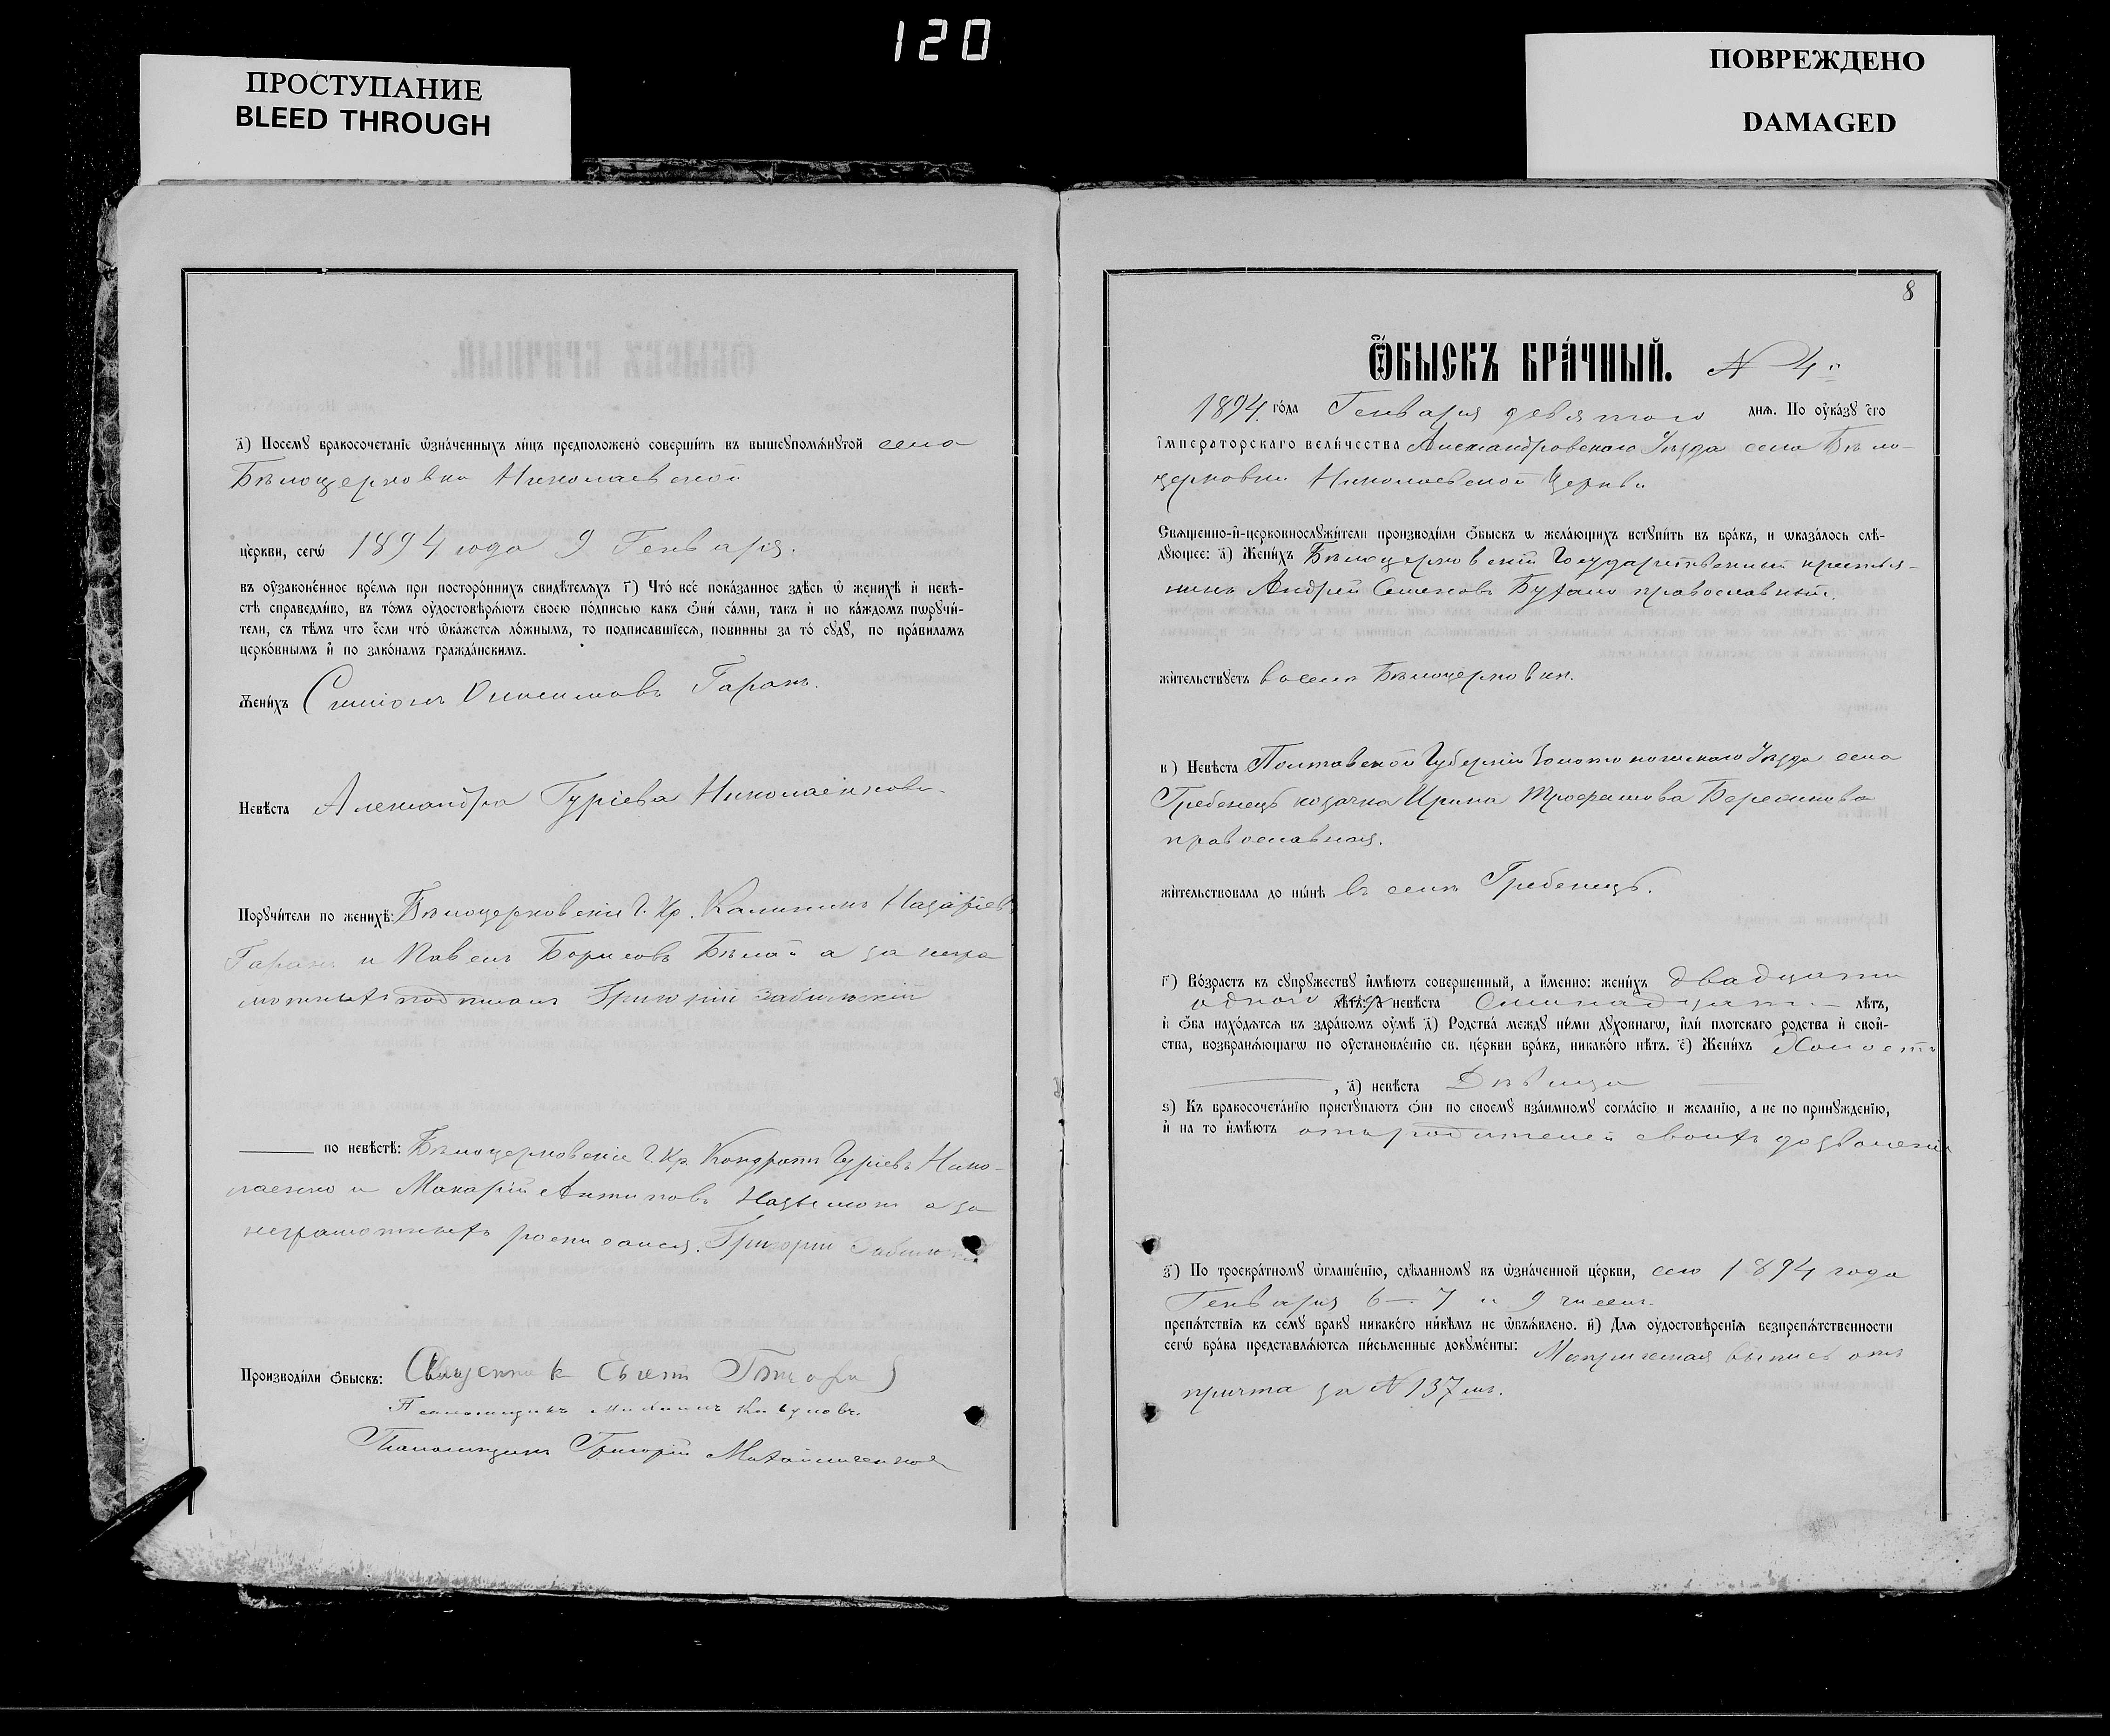 120
ПРОСТУПАНИЕ
BLEED THROUGH
ПОВРЕЖДЕНО
DAMAGED
д҃) Посемꙋ бракосочетанїе ѡ҆зна́ченныхъ ли́цъ предположено́ соверши́ть въ вышеꙋпомѧ́нꙋтой села
Бѣлоцерковки Николаевской
це́ркви, сегѡ̀ 1894 года 9 Генваря.
въ ᲂу҆зако́ненное вре́мѧ при посторо́ннихъ свидѣ́телѧхъ г҃) Что́ все́ пока́занное здѣ́сь ѡ҆ женихѣ̀ и҆ невѣ́-
стѣ справедли́во, въ то́мъ ᲂу҆достовѣрѧ́ютъ своею по́дписью какъ ѻ҆ни́ са́ми, такъ и҆ по ка́ждомъ порꙋчи́-
тели, съ тѣ́мъ что є҆́сли что́ ѡ҆ка́жетсѧ ло́жнымъ, то подписавшїесѧ, повинны за то́ сꙋдꙋ̀, по пра́виламъ
церко́внымъ и҆ по зако́намъ гражда́нскимъ.
Жени́хъ Симіонъ Онисимовъ Гаранъ.
Невѣ́ста Александра Гуріева Николаенкова
Порꙋчи́тели по женихѣ̀: Бѣлоцерковскіе Г. Кр. Калиникъ Назаріевъ
Гаранъ и Павелъ Борисовъ Бѣлай а за негра
мотныхъ подписалъ Григорій
по невѣ́стѣ: Бѣлоцерковскіе Г. Кр. Кондратъ Гуріевъ Нико-
лаенко и Макарій Антиповъ а за
неграмотныхъ росписался. Григорій
Производи́ли ѻ҆́быскъ: Священник
Псаломщикъ Михаилъ
Псаломщикъ Григорій Михайличенко
8
Ѻ҆́БЫСКЪ БРА́ЧНЫЙ. N 4й
1894 го́да Генваря девятаго днѧ. По ᲂу҆ка́зꙋ є҆го̀
і҆мператорскаго вели́чества Александровскаго Уѣзда села Бѣло-
церковки Николаевской Церкви
Свѧщенно-и҆-церковнослꙋжи́тели производи́ли ѻ҆́быскъ ѡ҆ жела́ющихъ встꙋпи́ть въ бра́къ, и ѡ҆каза́лось слѣ́-
дꙋющее: а҃) Жени́хъ Бѣлоцерковскій Государственный крестья-
нинъ Андрей Семеновъ православный.
жи́тельствꙋетъ въ селѣ Бѣлоцерковки.
в҃) Невѣ́ста Полтавской Губерніи Золотоношскаго Уѣзда села
Гребенецъ козачка Ирина Трофимова
православная.
жи́тельствовала до ны́нѣ въ селѣ Гребенецъ.
г҃) Во́зрастъ къ сꙋпрꙋжествꙋ и҆мѣ́ютъ соверше́нный, а и҆́менно: жени́хъ двадцати
одного лѣ́тъ, а невѣ́ста лѣ́тъ,
и҆ ѻ҆́ба нахо́дѧтсѧ въ здра́вомъ ᲂу҆мѣ̀ д҃) Родства́ междꙋ ни́ми дꙋхо́внагѡ, и҆ли́ плотскаго родства и҆ свой-
ства, возбранѧ́ющагѡ по ᲂу҆становле́нїю св. це́ркви бра́къ, никако́го нѣ́тъ. є҃) Жени́хъ Холостъ
, а҃) невѣ́ста Дѣвица
ѕ҃) Къ бракосочета́нїю пристꙋпа́ютъ ѻ҆нѝ по своемꙋ̀ взаи́мномꙋ согла́сїю и жела́нїю, а не по принꙋжде́нїю,
и҆ на то и҆мѣ́ютъ отъ родителей своихъ дозволеніе
з҃) По троекра́тномꙋ ѡ҆глаше́нїю, сдѣ́ланномꙋ въ ѡ҆зна́ченной це́ркви, сего 1894 года
Генваря 6 – 7 и 9 чисел.
препѧ́тствїѧ къ семꙋ̀ бракꙋ никако́го никѣ́мъ не ѡ҆бъѧ́влено. и҃) Длѧ ᲂу҆достовѣ́ренїѧ безпрепѧ́тственности
сегѡ̀ бра́ка представлѧ́ютсѧ пи́сьменные докꙋме́нты: Метрическая выпись отъ
причта за N 137мъ.